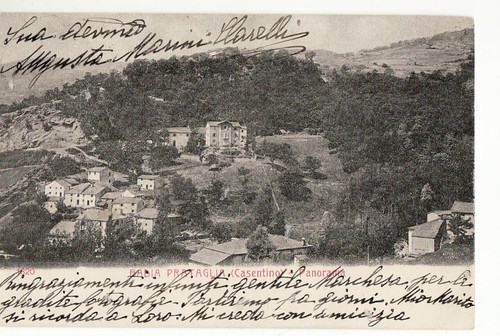 Sua devma
Augusta Marini Clarelli
1620 BADIA PRATAGLIA (Casentino) - Panorama
Ringraziamenti infiniti gentile Marchesa, per le
gradite fotografie. Partiremo fra giorni. Mio Marito
si ricorda a Loro. Mi creda con amicizia